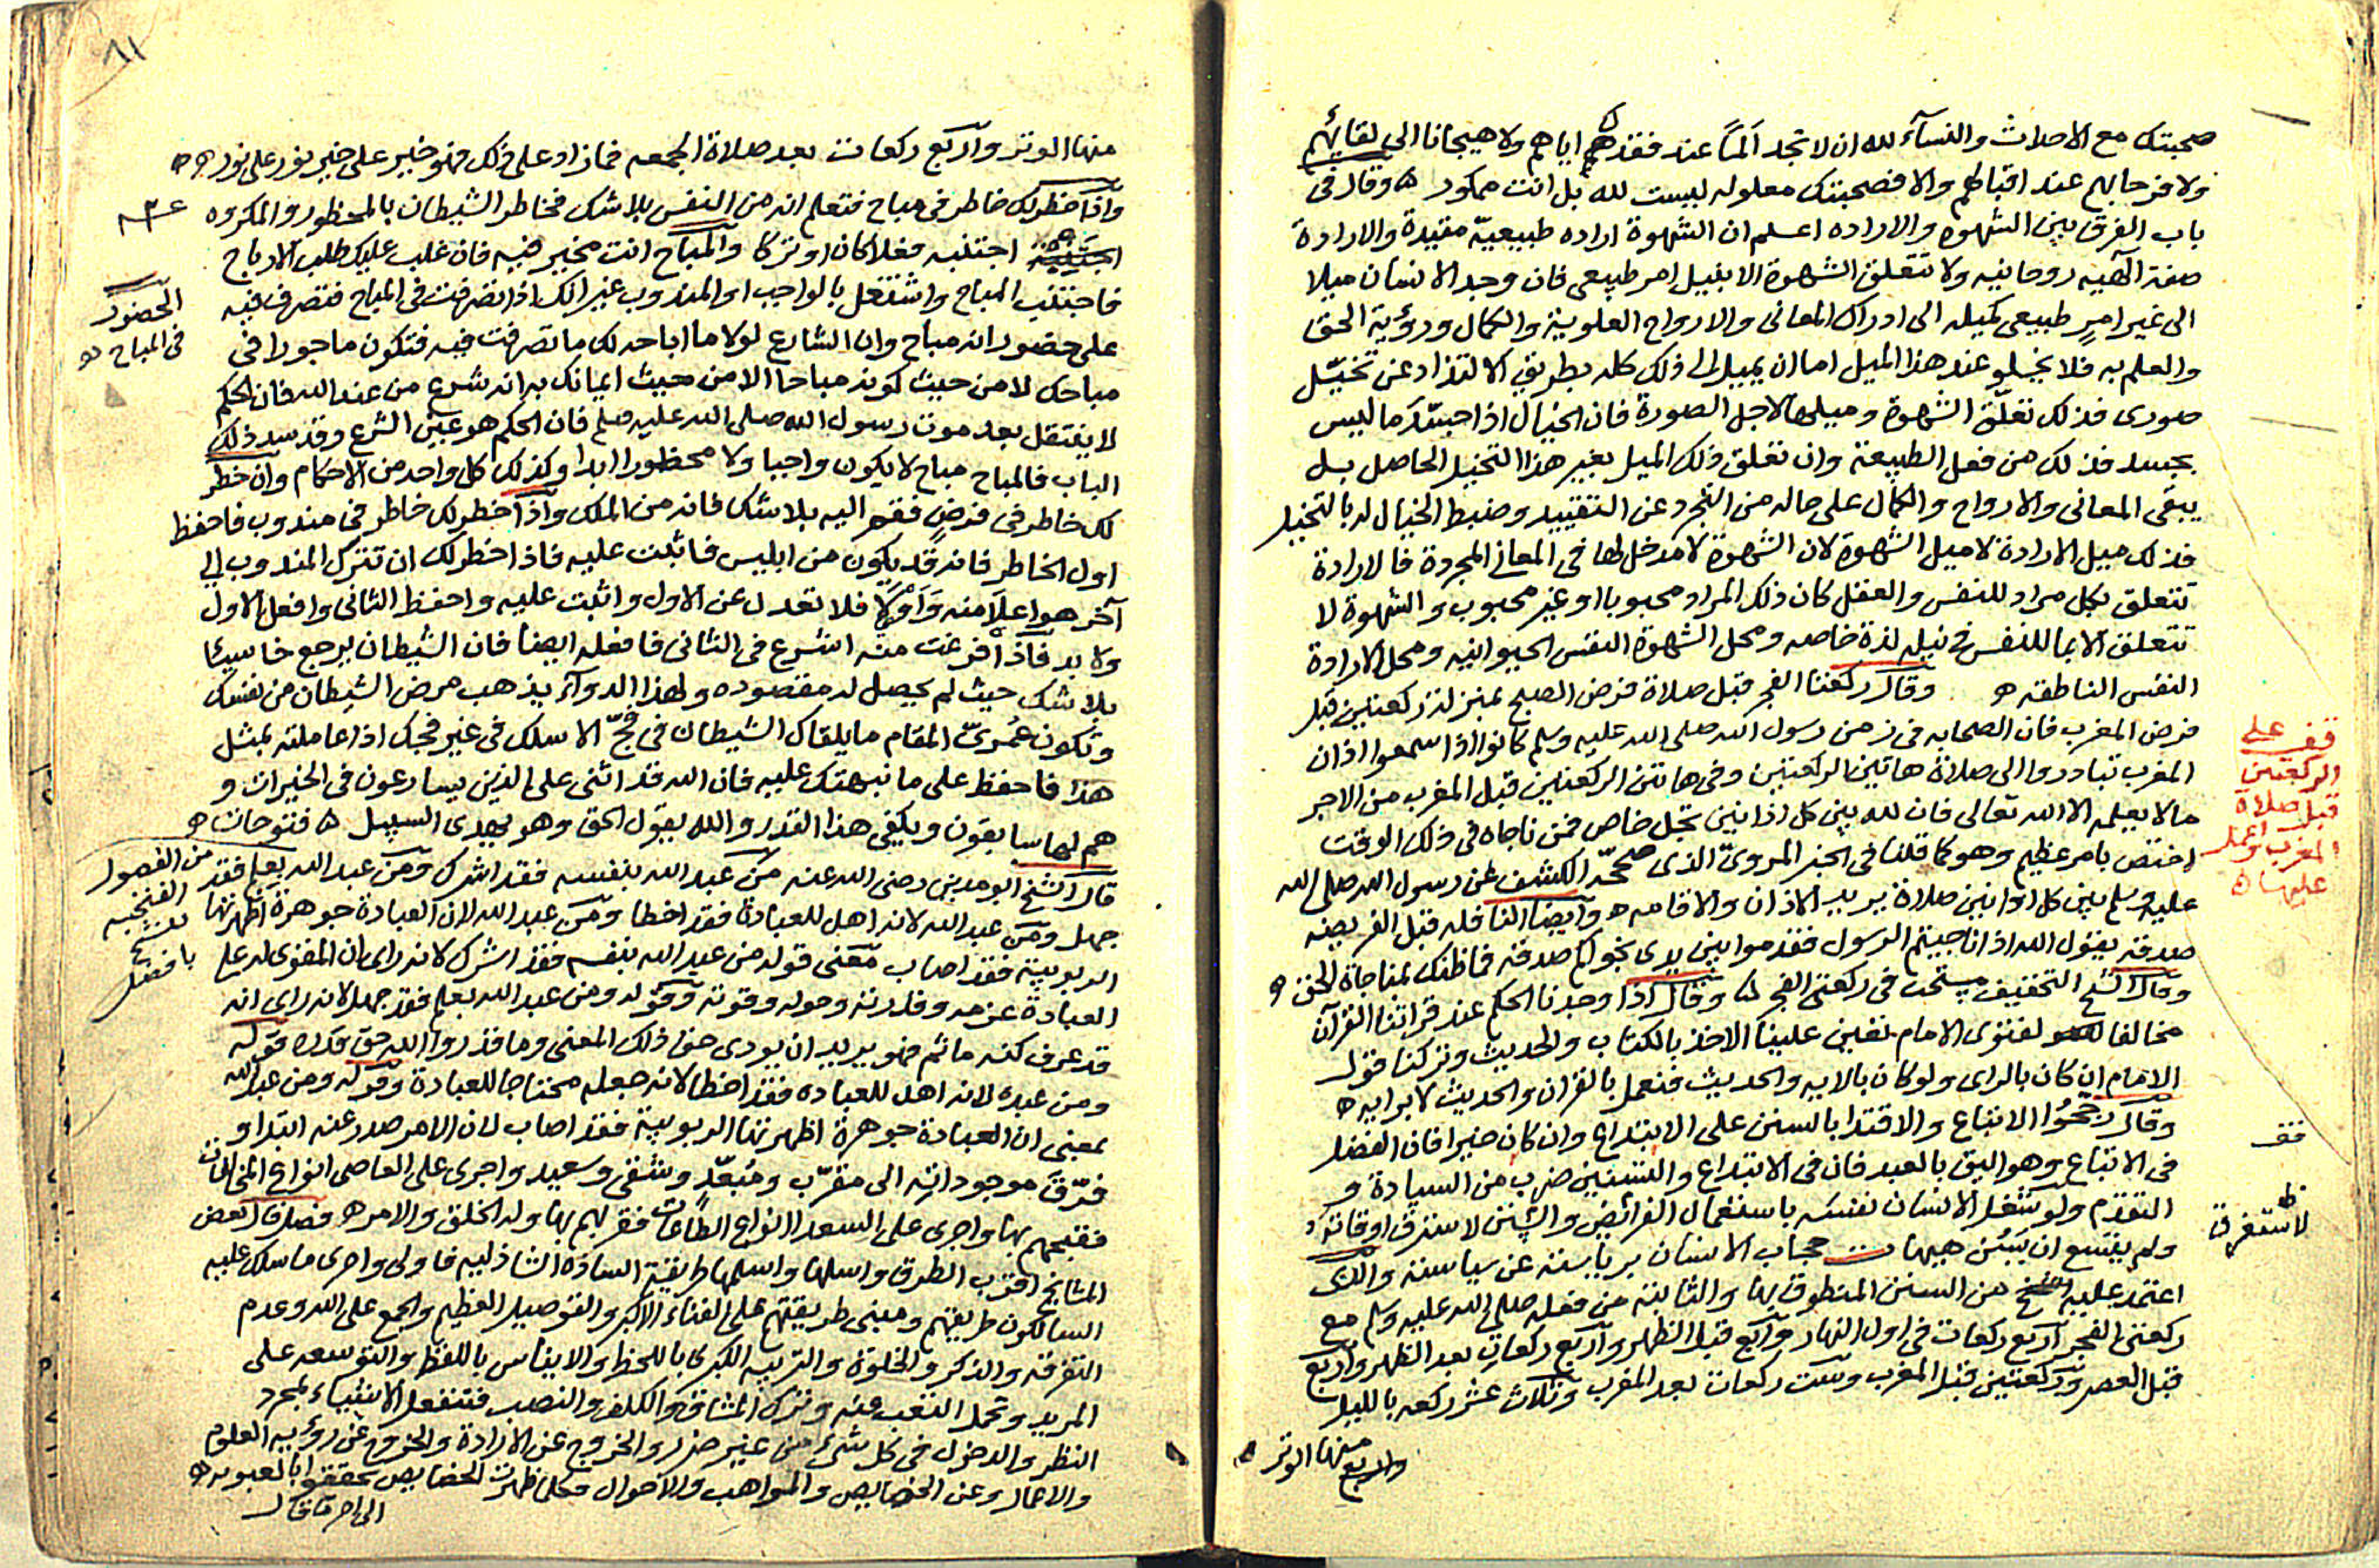 صحبتك مع الاحداث والنسآء لله ان لا تجد ألمًا عند فقدهم اياهم ولا هيجانا الى لقائهم
ولا فرحا بهم عند اقبالهم والا فصحبتك معلوله ليست لله بل انت ممكور ه وقال في
باب الفرق بين الشهوه والاراده اعلم ان الشهوة اراده طبيعيّة مقيدة والارادة
صفة آلهيه روحانيه ولا تتعلق الشهوة الا بنيل امر طبيعى فان وجد الانسان ميلا
الى غير امرٍ طبيعى كميله الى ادراك المعانى والارواح العلوية والكمال ورؤية الحق
والعلم به فلا يخلو عند هذا الميل اما ان يميل الى ذلك كله بطريق الالتذاذ عن تخيّل
صورى فذلك تعلّق الشهوة وميلها لاجل الصورة فان الخيال اذا جسّد ما ليس
بجسد فذلك من فعل الطبيعة وان تعلق ذلك الميل بغير هذا التخيل الحاصل بل
يبقى المعانى والارواح والكمال على حاله من التجرد عن التقييد وضبط الخيال له بالتخيل
فذلك ميل الارادة لا ميل الشهوة لان الشهوة لا مدخل لها فى المعانى المجردة فالارادة
تتعلق بكل مراد للنفس والعقل كان ذلك المراد محبوبا او غير محبوب والشهوة لا
تتعلق الا بما للنفس فى نيله لذة خاصه ومحل الشهوة النفس الحيوانيه ومحل الارادة
النفس الناطقه ه وقال ركعتا الفجر قبل صلاة فرض الصبح بمنزلة ركعتين قبل
فرض المغرب فان الصحابه فى زمن رسول الله صلى الله عليه وسلم كانوا اذا سمعوا اذان
المغرب تبادروا الى صلاة هاتين الركعتين وفى هاتين الركعتين قبل المغرب من الاجر
مالا يعلمه الا الله تعالى فان لله بين كل اذانين تجل خاص فمن ناجاه فى ذلك الوقت
اختص بامر عظيم وهو كما قلنا فى الخبر المروىّ الذى صححّه الكشف عن رسول الله صلى الله
عليه وسلم بين كل اذانين صلاة يريد الاذان والاقامه ه وايضا النافله قبل الفريضه
صدقة يقول الله اذا ناجيتم الرسول فقدموا بين يدى نجوٰكم صدقه فما ظنك بمناجاة الحق ه
وقال الشيخ التخفيف مستحب فى ركعتى الفجر ه وقال اذا وجدنا الحكم عند قراتنا القرآن
مخالفا لفتوى الامام تعين علينا الاخذ بالكتاب والحديث وتركنا قول
الامام ان كان بالراى ولو كان بالايه والحديث فنعمل بالقران والحديث لا برايه ه
وقال رجّحُوا الاتباع والاقتدا بالسنن على الابتداع وان كان خيرا فان الفضل
فى الاتباع وهو اليق بالعبد فان فى الابتداع والتسنين ضرب من السيادة و
التقدم ولو شغل الانسان نفسه باستعمال الفرائض والسنن لاستغرق اوقاته
ولم يتسع ان يَسُن هيهات حجاب الانسان برياسته عن سياسته والذى
اعتمد عليه الشيخ من السنن المنطوق بها والثابتة من فعله صلى الله عليه وسلم مع
ركعتى الفجر آربع ركعات فى اول النهار واربع قبل الظهر وآربع ركعات بعد الظهر واربع
قبل العصر وركعتين قبل المغرب وست ركعات بعد المغرب وثلاث عشر ركعه بالليل
منها الوتر
واربع
قف على
الركعتين
قبل صلاة
المغرب واعمل
عليها ه
قف
ظ
لاستغرق
٨١
منها الوتر وآربع ركعات بعد صلاة الجمعه فما زاد على ذلك فهو خير على خير نور على نور ه
واذا خطر لك خاطر فى مباح فتعلم انه من النفس بلا شك فخاطر الشيطان بالمحظور والمكروه
اجتنبه فعلا كان او تركا والمباح انت مخير فيه فان غلب عليك طلب الارباح
فاجتنب المباح واشتغل بالواجب او المندوب غير انك اذا تصرفت فى المباح فتصرف فيه
على حضور انه مباح وان الشارع لولا ما اباحه لك ما تصرفت فيه فتكون ماجورا فى
مباحك لا من حيث كونه مباحا الا من حيث ايمانك به انه شرع من عند الله فان الحكم
لا ينتقل بعد موت رسول الله صلى الله عليه وسلم فان الحكم هو عين الشرع وقد سد ذلك
الباب فالمباح مباح لا يكون واجبا ولا محظورا ابدا وكذلك كل واحد من الاحكام وان خطر
لك خاطر فى فرضٍ فقم اليه بلا شك فانه من الملك واذا خطر لك خاطر فى مندوب فاحفظ
اول الخاطر فانه قد يكون من ابليس فاثبت عليه فاذا خطر لك ان تترك المندوب الى
آخر هو اعلا منه وَاَوْلىٰ فلا تعدل عن الاول واثبت عليه واحفظ الثانى وافعل الاول
ولا بد فاذا فرغت منه اشرع فى الثانى فافعله ايضا فان الشيطان يرجع خاسئا
بلا شك حيث لم يحصل له مقصوده ولهذا الدوآء يذهب مرض الشيطان من نفسك
وتكون عُمَرىّ المقام ما يلقاك الشيطان فى فجّ الا سلك فى غير فجك اذا عاملته بمثل
هذا فاحفظ على ما نبهتك عليه فان الله قد اثنى على الذين يسارعون فى الخيرات و
هم لها سابقون ويكفى هذا القدر والله يقول الحق وهو يهدى السبيل ه فتوحات ه
قال الشيخ ابو مدين رضى الله عنه من عبد الله بنفسه فقد اشرك ومن عبد الله بعلم فقد
جهل ومن عبد الله لانه اهل للعبادة فقد اخطا ومن عبد الله لان العبادة جوهرة اظهرتها
الربوبية فقد اصاب معنى قوله من عبد الله بنفسه فقد اشرك لانه راى ان المقوى له على
العبادة عزمه وقدرته وحوله وقوته وقوله ومن عبد الله بعلم فقد جهل لانه راى انه
قد عرف كنه ما ثم فهو يريد ان يودى حق ذلك المعنى وما قدروا الله حق قدره قوله
ومن عبده لانه اهل للعباده فقد اخطا لانه جعله محتاجا للعبادة وقوله ومن عبد الله
بمعنى ان العبادة جوهرة اظهرتها الربوبية فقد اصاب لان الامر صدر عنه ابتدا و
فرّق موجوداته الى مقرّب ومُبعّد وشقى وسعيد واجرى على العاصى انواع المخالفات
فقبحهم بها واجرى على السعدا انواع الطاعات فقربهم بها وله الخلق والامر ه فصل قال بعض
المشايخ اقرب الطرق واسهلها واسلمها طريقة الساده الشاذليه فاولى واحرى ما سلك عليه
السالكون طريقتهم ومبنى طريقتهم على الفناء الاكبر والتوصيل العظيم والجمع على الله وعدم
التفرقه والذكر والخلوة والتربيه الكبرى باللحظ والايناس باللفظ والتوسعه على
المريد وتحمل التعب عنه وترك المشاق والكلف والنصب فتنفعل الاشياء بمجرد
النظر والدخول فى كل شئ من غير ضرر والخروج عن الارادة والخروج عن رؤيه العلوم
والاعمال وعن الخصايص والمواهب والاحوال فكلما ظهرت الخصايص تحققوا بالعبوديه ه
الى اخر ما قال
الحضور
فى المباح ه
من الفصول
الفتحيه
للشيخ
بافضل